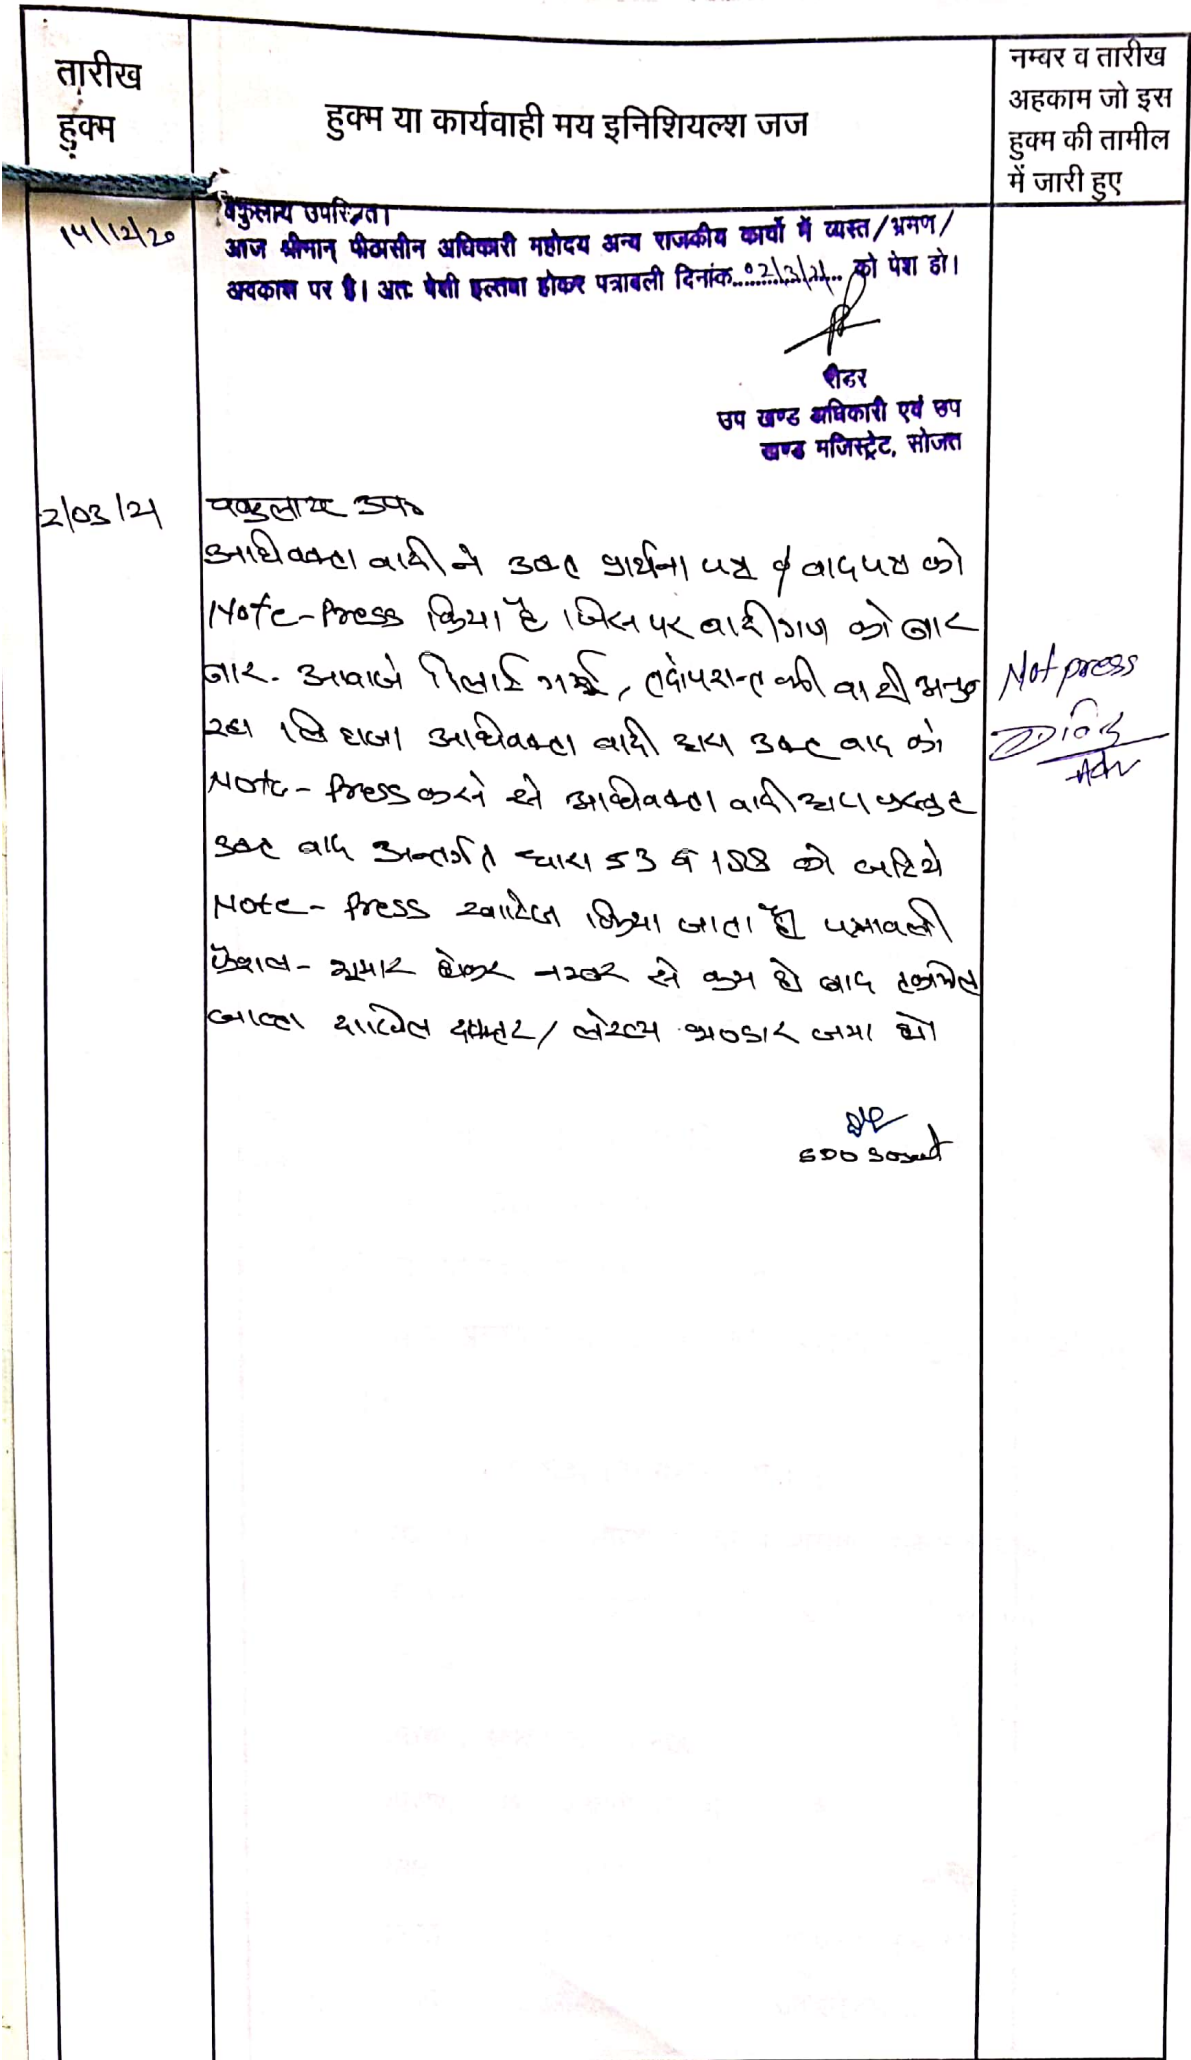 तारीख
हुक्म
हुक्म या कार्यवाही मय इनिशियल्श जज
नम्बर व तारीख
अहकाम जो इस
हुक्म की तामील
में जारी हुए
14/12/20
वकुलाय उपस्थित।
आज श्रीमान् पीठासीन अधिकारी महोदय अन्य राजकीय कार्यो में व्यस्त/भ्रमण/
अवकाश पर है। अतः पेशी इल्तवा होकर पत्रावली दिनांक..02/3/21.. को पेश हो।
रीडर
उप खण्ड अधिकारी एवं उप
खण्ड मजिस्ट्रेट, सोजत
2/03/21
वकुलाय उप०
अधिवक्ता वादी ने उक्त प्रार्थना पत्र व वादपत्र को
Note-Press किया है जिस पर वादीगण को बार
बार. आवाजे दिलाई गई, तदोपरान्त भी वादी
रहा लिहाजा अधिवक्ता वादी द्वारा उक्त वाद को
Note-Press करने से अधिवक्ता वादी द्वारा प्रस्तुत
उक्त वाद अन्तर्गत धारा 53 व 188 को जरिये
Note-Press खारिज किया जाता है पत्रावली
फैशल-शुमार होकर नम्बर से कम हो बाद तकमील
जाब्ता दाखिल दफ्तर/ भण्डार जमा हो
Not press
Adv
SDO Sojat